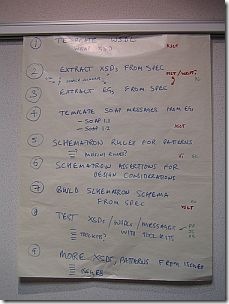 ① TEMPLATE WSDL
WRAP XSD? XSLT
② EXTRACT XSDs FROM SPEC
XSLT /
③ EXTRACT EGs FROM SPEC
④ TEMPLATE SOAP MESSAGES FROM EGs
- SOAP 1.1
- SOAP 1.2 XSLT
⑤ SCHEMATRON RULES FOR PATTERNS
⑥ SCHEMATRON ASSERTIONS FOR
DESIGN CONSIDERATIONS
⑦ BUILD SCHEMATRON SCHEMA
FROM SPEC XSLT
⑧ TEST XSDs/WSDLs/MESSAGES
WITH TOOLKITS
TOOLKITS?
⑨ MORE XSDs/PATTERNS FROM ISSUES
ISSUES